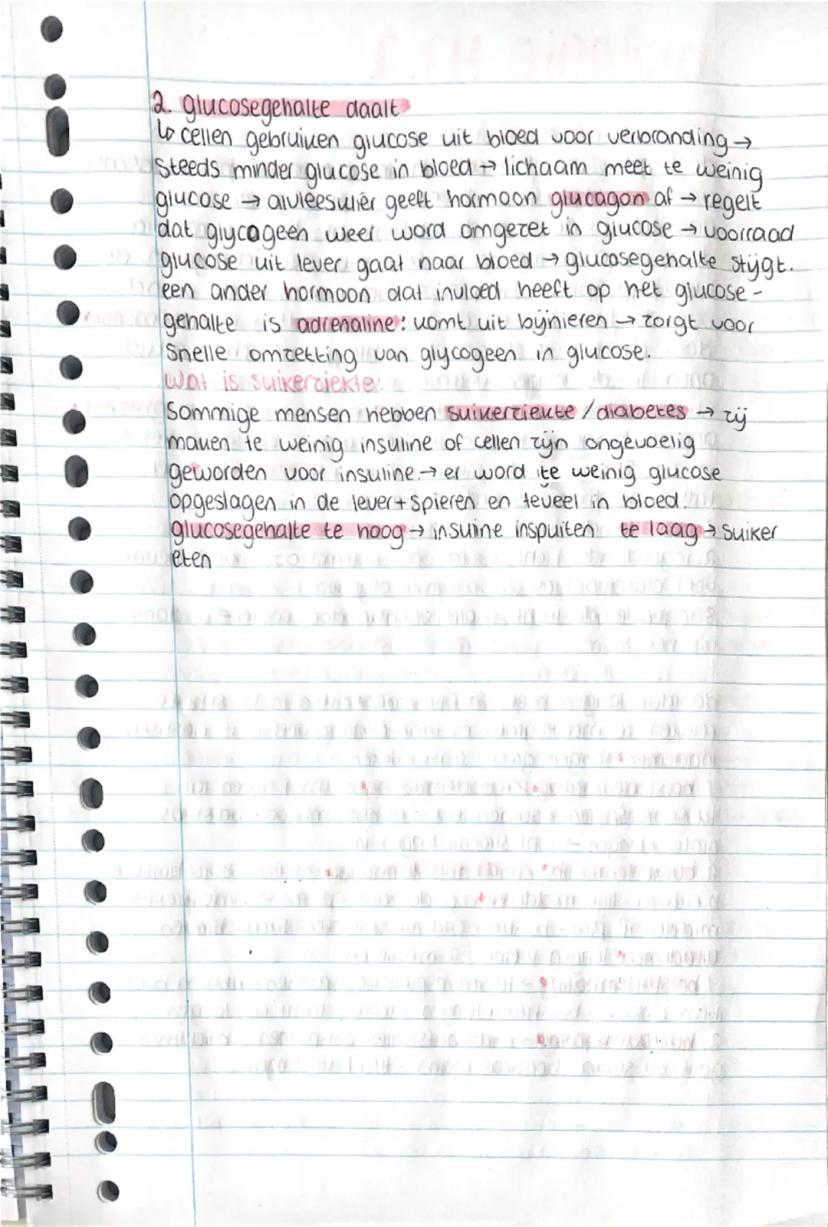 2. glucosegehalte daalt
↳ cellen gebruiken glucose uit bloed voor verbranding →
steeds minder glucose in bloed → lichaam meet te weinig
glucose → alvleesklier geeft hormoon glucagon af → regelt
dat glycogeen weer word omgezet in glucose → voorraad
glucose uit lever gaat naar bloed → glucosegehalte stijgt.
een ander hormoon dat invloed heeft op het glucose-
gehalte is adrenaline: komt uit bijnieren → zorgt voor
snelle omzetting van glycogeen in glucose.
wat is suikerziekte:
Sommige mensen hebben suikerziekte / diabetes → zij
maken te weinig insuline of cellen zijn ongevoelig
geworden voor insuline. → er word te weinig glucose
opgeslagen in de lever + spieren en teveel in bloed.
glucosegehalte te hoog → insuline inspuiten te laag → suiker
eten